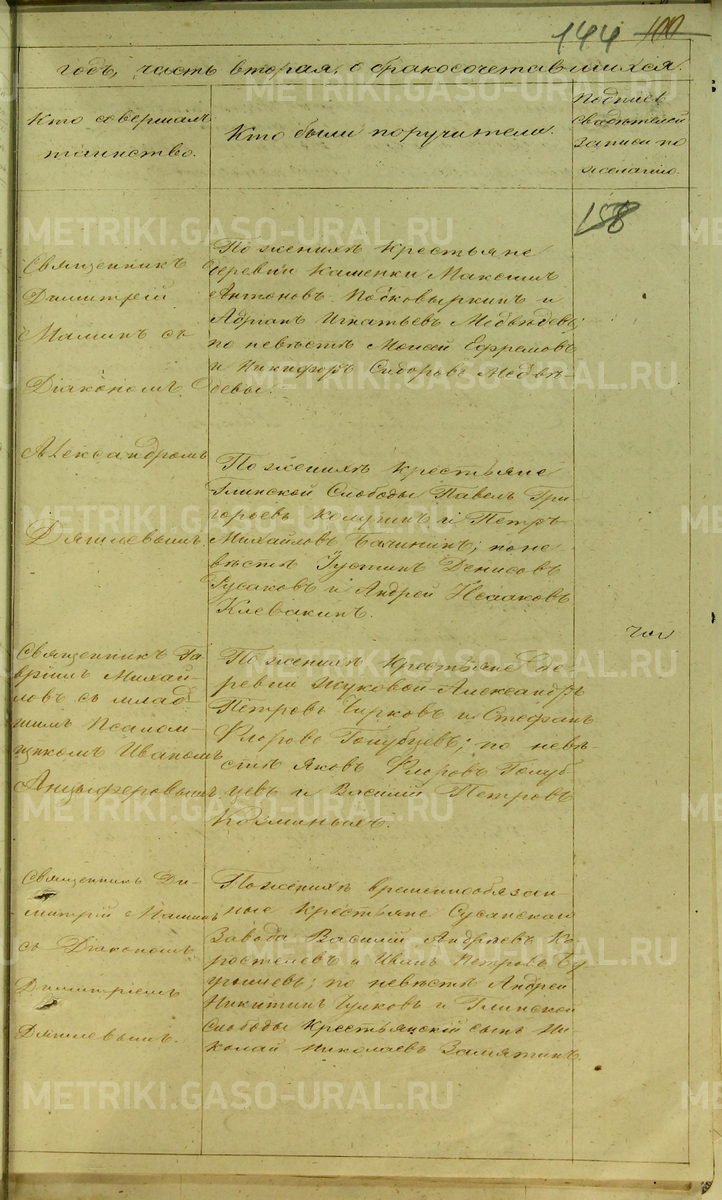 144 100
годъ, часть вторая, о бракосочетавшихся.
Кто совершалъ
таинство.
Кто были поручители.
Подпись
свидѣтелей
записи по
желанію.
158
Священникъ
Димитрій
Маминъ съ
Діакономъ
Александромъ
Дягилевымъ.
По женихѣ крестьяне
деревни Каменки Максимъ
Антоновъ Подковыркинъ и
Адрианъ Игнатьевъ Медвѣдевъ;
по невѣстѣ Моисей Ефремовъ
и Никифоръ Сидоровъ Медвѣ-
девы.
По женихѣ крестьяне
Глинской Слободы Павелъ Гри-
горьевъ и Петръ
Михайловъ; по не-
вѣстѣ Густинъ Денисовъ
Гусаковъ и Андрей Исааковъ
Клевакинъ.
Священникъ Га-
вріилъ Михай-
ловъ съ млад-
шимъ Псалом-
щикомъ Иваномъ
Анцыферовымъ
По женихѣ крестьяне де-
ревни Жуковой Александръ
Петровъ Чирковъ и Стефанъ
Флоровъ Голубцевъ; по невѣ-
стѣ Яковъ Флоровъ Голуб-
цевъ и Василій Петровъ
Козминыхъ.
Священникъ Ди-
митрій Маминъ
съ Діакономъ
Димитріемъ
Дягилевымъ.
По женихѣ временнообязан-
ные крестьяне Сусанскаго
Завода Василій Андреевъ Ко-
ростелевъ и Иванъ Петровъ
по невѣстѣ Андрей
Никитинъ Чулковъ и Глинской
слободы Крестьянскій сынъ Ни-
колай Николаевъ Замятинъ.
METRIKI.GASO-URAL.RU